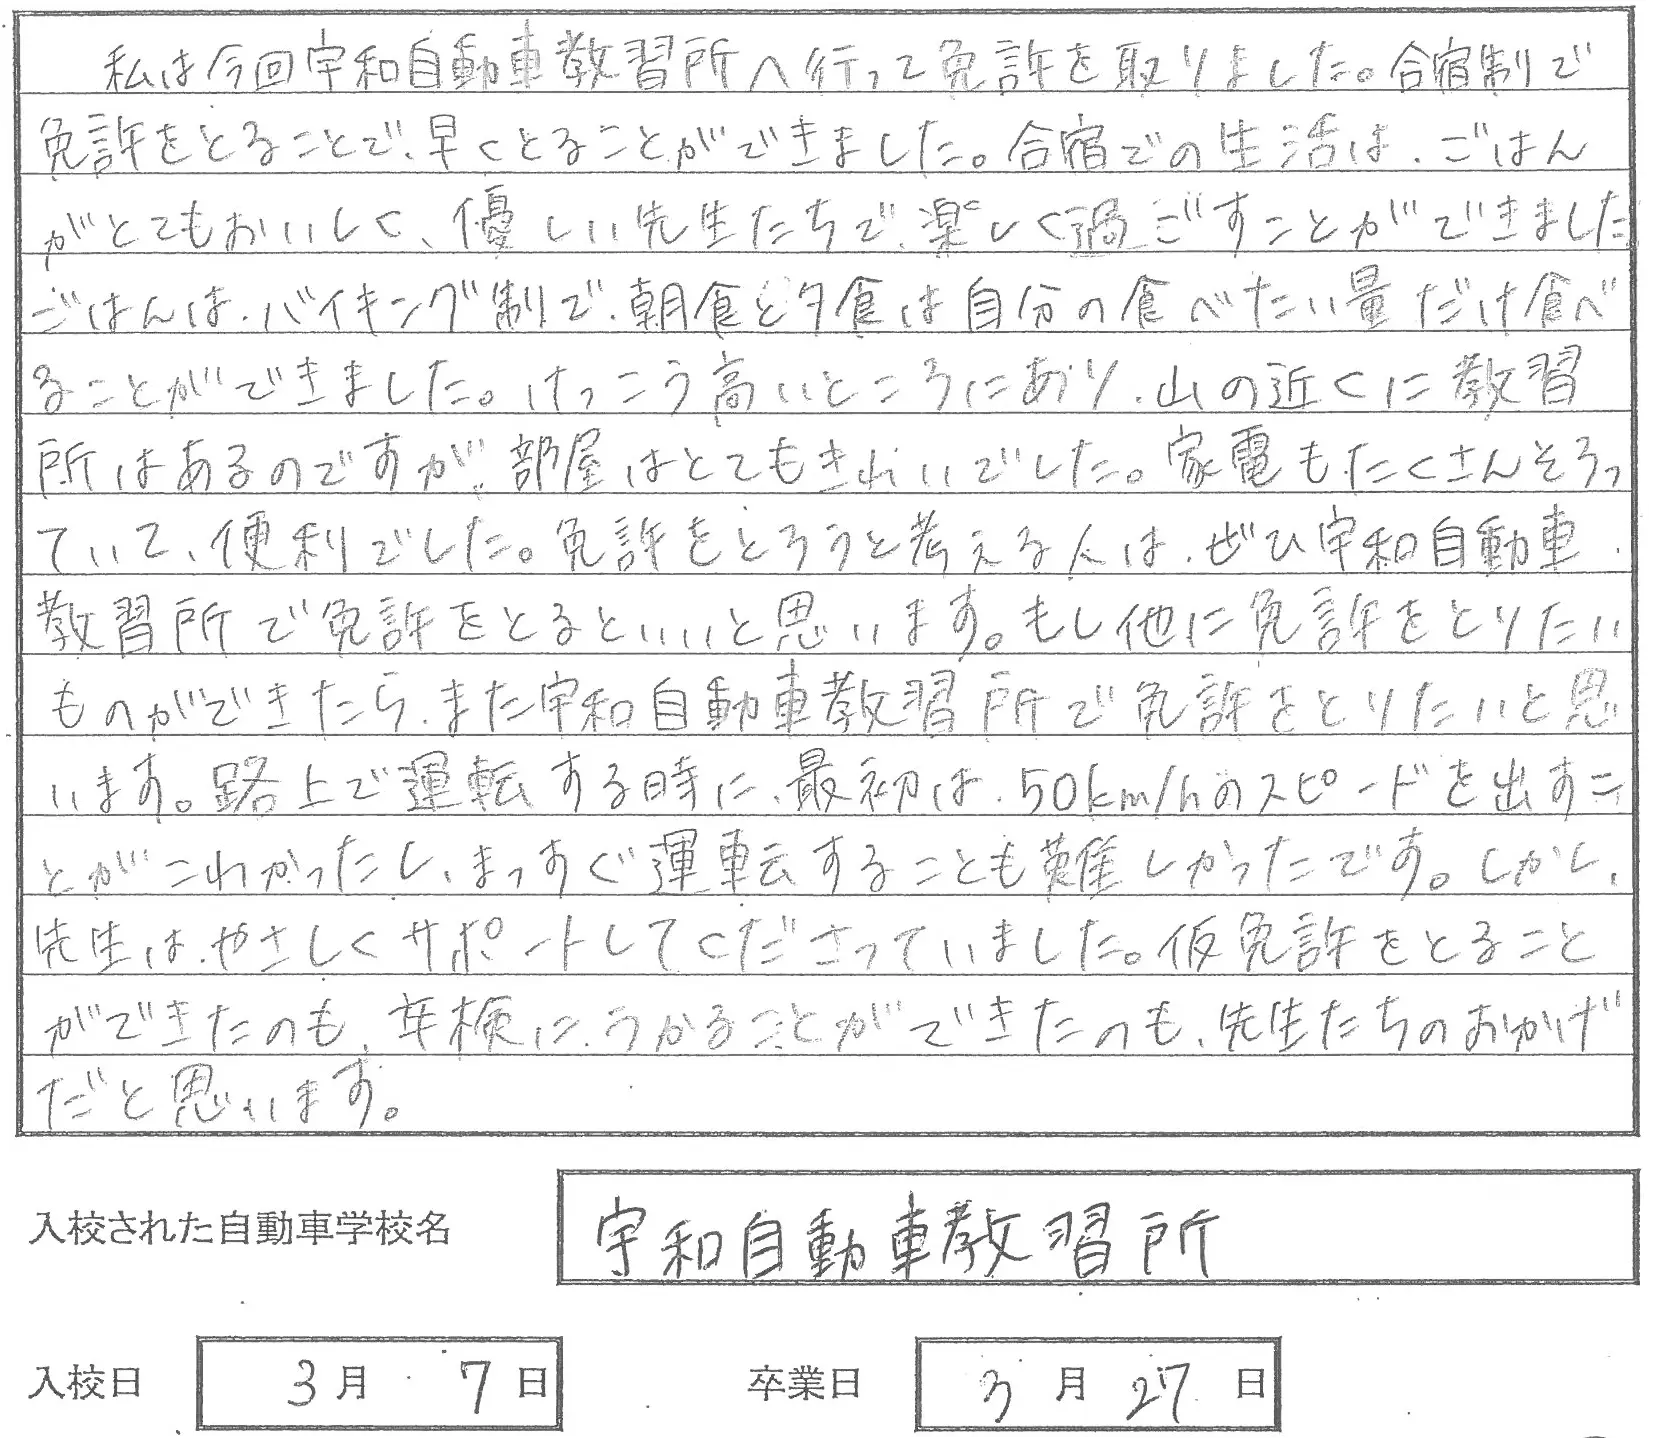 私は今回宇和自動車教習所へ行って免許を取りました。合宿制で
免許をとることで、早くとることができました。合宿での生活は、ごはん
がとてもおいしく、優しい先生たちで、楽しく過ごすことができました
ごはんは、バイキング制で、朝食と夕食は自分の食べたい量だけ食べ
ることができました。けっこう高いところにあり、山の近くに教習
所はあるのですが、部屋はとてもきれいでした。家電もたくさんそろっ
ていて、便利でした。免許をとろうと考える人は、ぜひ宇和自動車
教習所で免許をとるといいと思います。もし他に免許をとりたい
ものができたら、また宇和自動車教習所で免許をとりたいと思
います。路上で運転する時に、最初は、50km/hのスピードを出すこ
とがこわかったし、まっすぐ運転することも難しかったです。しかし、
先生は、やさしくサポートしてくださっていました。仮免許をとること
ができたのも、卒検に、うかることができたのも、先生たちのおかげ
だと思います。
入校された自動車学校名 宇和自動車教習所
入校日 3月 7日 卒業日 3月 27日